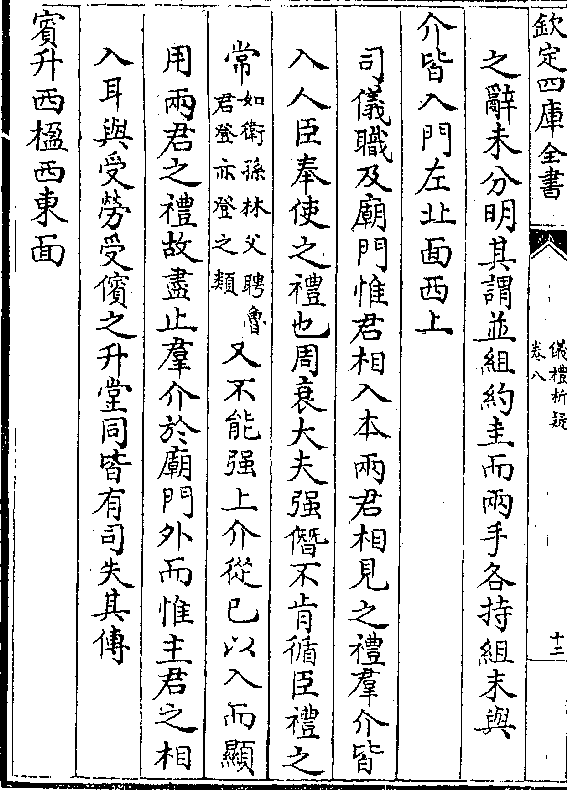 欽定四庫全書
儀禮析疑
卷八
十二
之辭未分明其謂並組約圭而兩手各持組末與
介皆入門左北面西上
司儀職及廟門惟君相入本兩君相見之禮羣介皆
入人臣奉使之禮也周衰大夫强僭不肯循臣禮之
常如衛孫林父聘魯君登亦登之類又不能强上介從已以入而顯
用兩君之禮故盡止羣介於廟門外而惟主君之相
入耳與受勞受儐之升堂同皆有司失其傳
賓升西楹西東面